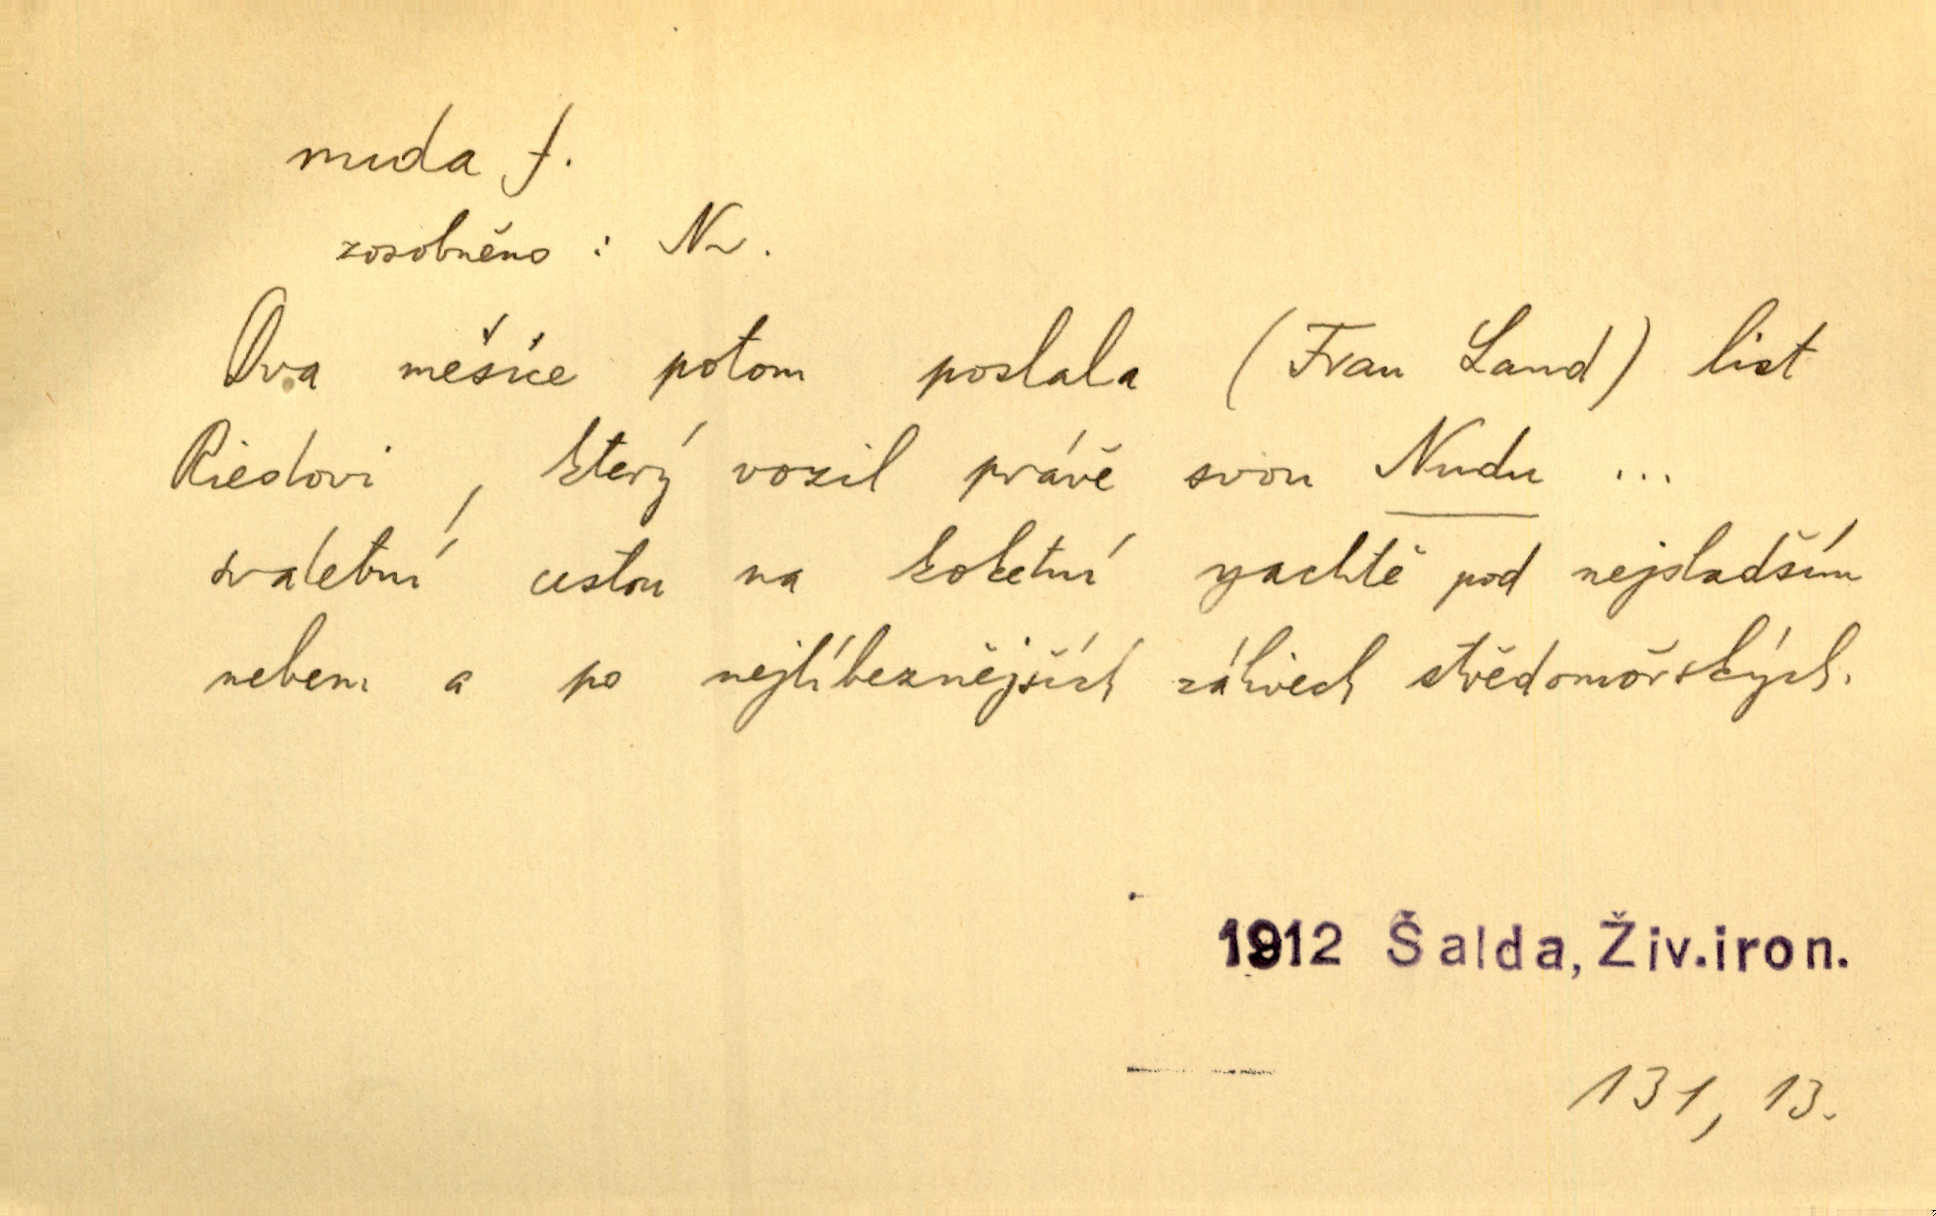 nuda f.
zosobněno : N.
Dva měsíce potom poslala (Frau Land) list
Riedlovi, který vozil právě svou Nudu ...
svatební cestou na koketní yachtě pod nejsladším
nebem a po nejlíbeznějších zálivech středomořských.
1912 Šalda, Živ.iron.
131, 13.